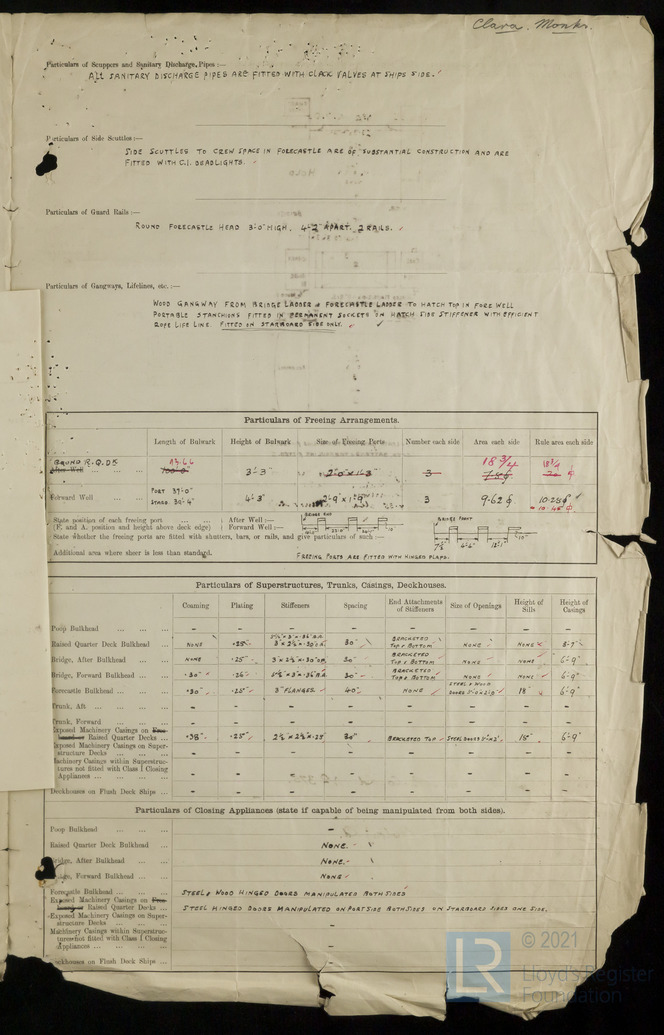 Clara Monks.
Particulars of Scuppers and Sanitary Discharge Pipes :—
ALL SANITARY DISCHARGE PIPES ARE FITTED WITH CLACK VALVES AT SHIPS SIDE.
Particulars of Side Scuttles:—
SIDE SCUTTLES TO CREW SPACE IN FORECASTLE ARE OF SUBSTANTIAL CONSTRUCTION AND ARE
FITTED WITH C.I. DEADLIGHTS.
Particulars of Guard Rails:—
ROUND FORECASTLE HEAD 3'-0" HIGH. 4'-2" APART. 2 RAILS.
Particulars of Gangways, Lifelines, etc. :—
WOOD GANGWAY FROM BRIDGE LADDER & FORECASTLE LADDER TO HATCH TOP IN FORE WELL
PORTABLE STANCHIONS FITTED IN PERMANENT SOCKETS ON HATCH SIDE STIFFENER WITH EFFICIENT
ROPE LIFE LINE. FITTED ON STARBOARD SIDE ONLY.
Particulars of Freeing Arrangements.
Length of Bulwark Height of Bulwark Size of Freeing Ports Number each side Area each side Rule area each side
After Well ... ... 3'-3" 2'-0" x 1'-3" 3 18 3/4
Forward Well ... ... PORT 39'-0" 4'-3" 2'-9" x 1'-9" 3 9.62 10.28
STARB. 30'-4" 10.45
State position of each freeing port ... ... After Well :—
(F. and A. position and height above deck edge) Forward Well :—
State whether the freeing ports are fitted with shutters, bars, or rails, and give particulars of such :—
Additional area where sheer is less than standard. FREEING PORTS ARE FITTED WITH HINGED FLAPS.
Particulars of Superstructures, Trunks, Casings, Deckhouses.
Coaming Plating Stiffeners Spacing End Attachments of Stiffeners Size of Openings Height of Sills Height of Casings
Poop Bulkhead ... ... ... – – – – – – – –
Raised Quarter Deck Bulkhead ... NONE .25 30" BRACKETED TOP & BOTTOM NONE NONE 3'-7"
Bridge, After Bulkhead ... ... NONE .25" 30" BRACKETED TOP & BOTTOM NONE NONE 6'-9"
Bridge, Forward Bulkhead ... ... .30" .26" 30" BRACKETED TOP & BOTTOM NONE NONE 6'-9"
Forecastle Bulkhead ... ... ... .30" .25" 3" FLANGES. 40" NONE STEEL & WOOD DOORS 18" 6'-9"
Trunk, Aft ... ... ... – – – – – – – –
Trunk, Forward ... ... ... – – – – – – – –
Exposed Machinery Casings on Raised Quarter Decks ... .38" .25" 2½ x 2½ x .25 30" BRACKETED TOP STEEL DOORS 15" 6'-9"
Exposed Machinery Casings on Superstructure Decks ... ... ... – – – – – – – –
Machinery Casings within Superstructures not fitted with Class I Closing Appliances ... ... ... – – – – – – – –
Deckhouses on Flush Deck Ships ... – – – – – – – –
Particulars of Closing Appliances (state if capable of being manipulated from both sides).
Poop Bulkhead ... ... ... –
Raised Quarter Deck Bulkhead ... NONE.
Bridge, After Bulkhead ... ... NONE.
Bridge, Forward Bulkhead ... ... NONE
Forecastle Bulkhead ... ... ... STEEL & WOOD HINGED DOORS MANIPULATED BOTH SIDES
Exposed Machinery Casings on Raised Quarter Decks ... STEEL HINGED DOORS MANIPULATED ON PORT SIDE BOTH SIDES ON STARBOARD SIDES ONE SIDE.
Exposed Machinery Casings on Superstructure Decks ... ... ... –
Machinery Casings within Superstructures not fitted with Class I Closing Appliances ... ... ... –
Deckhouses on Flush Deck Ships ...
LR
© 2021
Lloyd's Register
Foundation